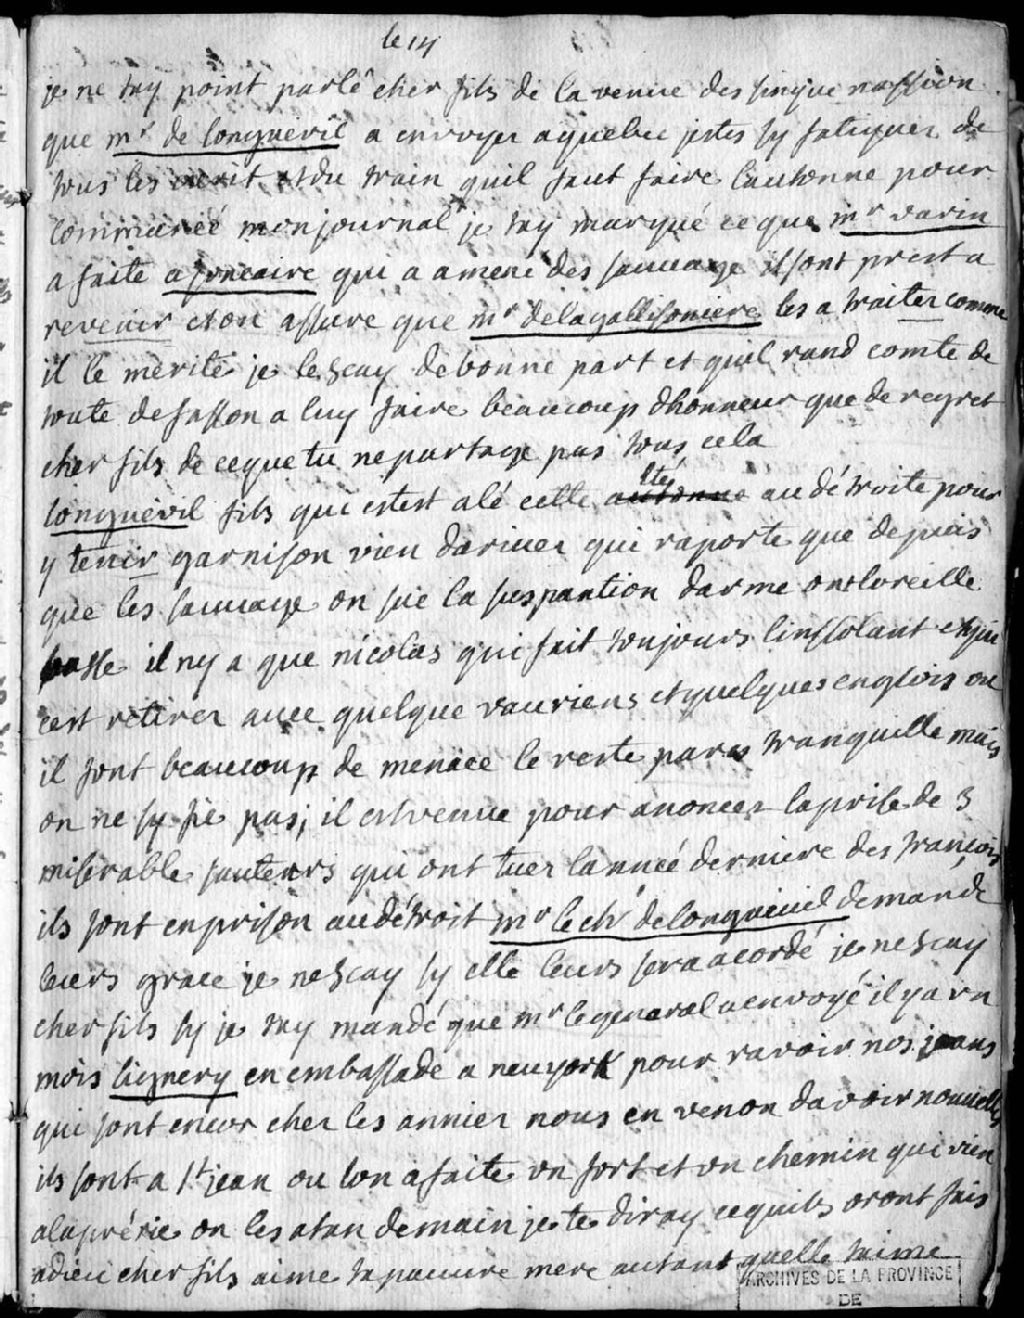 le 14
je ne tay point parlé cher fils de la venue des sinque nassion
que mr de longuevil a envoyer a quebec jetes sy fatiguer de
tous les et du train quil faut faire lautonne pour
mon journal je tay marqué ce que mr varin
a faite a joncaire qui a amené des sauvage il sont prest a
revenir et on assure que mr de lagallisoniere les a traiter comme
il le merite je le scay de bonne part et quil rand comte de
toute de fasson a luy faire beaucoup dhonneur que de regret
cher fils de ceque tu ne partage pas tous cela
longuevil fils qui estest alé cette autonne été au détroite pour
y tenir garnison vien dariver qui raporte que depuis
que les sauvage on sue la suspantion darme on loreille
basse il ny a que nicolas qui fait toujours linssolant et qui
cest retirer avec quelque vauriens et quelques englois ou
il font beaucoup de menace le reste pares tranquille mais
on ne sy fie pas; il est venue pour anoncer la prise de 3
miserable sauteurs qui ont tuer lanneé derniere des francois
ils sont en prison au détroit mr le chr de longueuil demande
leurs grace je ne scay sy elle leurs sera acordé je ne scay
cher fils sy je tay mandé que mr le general a envoyé il y a un
mois lignery en embassade a neuyork pour ravoir nos jeans
qui sont encor cher les annier nous en venon davoir nouvelles
ils sont a st jean ou lon a faite un fort et un chemin qui vien
a laprérie on les atan demain je te diray cequils oront fais
adieu cher fils aime ta pauvre mere autant quelle taime
ARCHIVES DE LA PROVINCE
DE